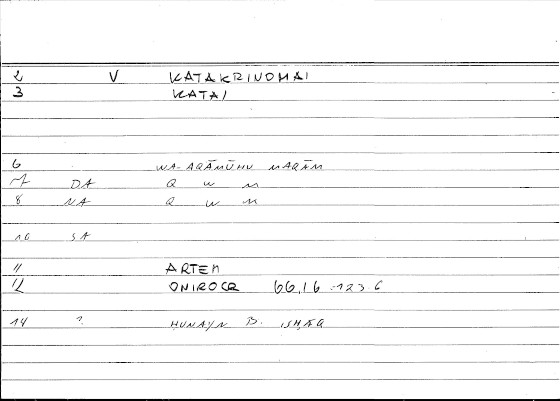 2 V KATAKRINOMAI
3 KATAI
6 WA-AQĀMŪHU MAQĀM
7 DA Q W M
8 NA Q W M
10 SA
11 ARTEM
12 ONIROCR 66,16 123 6
14 ? ḤUNAYN B. ISḤĀQ